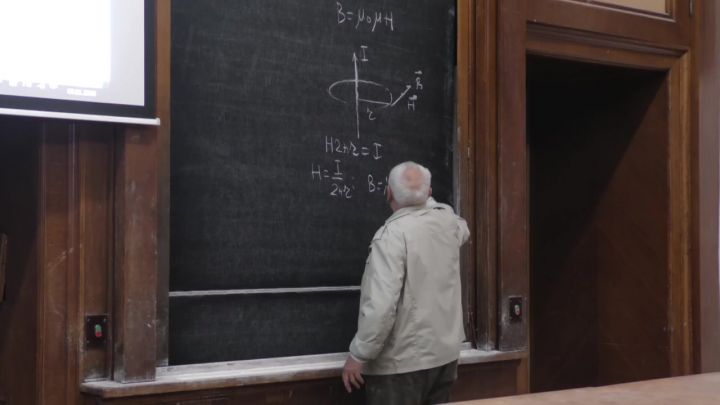 B = μ₀μH
I
B⃗
H⃗
r
H2πr = I
H = I/2πr
B =